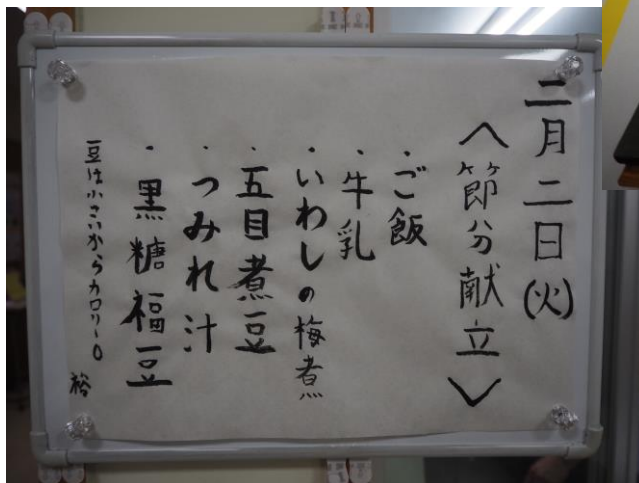 二月二日(火)
＜節分献立＞
・ご飯
・牛乳
・いわしの梅煮
・五目煮豆
・つみれ汁
・黒糖福豆
豆は小さいからカロリー0
裕